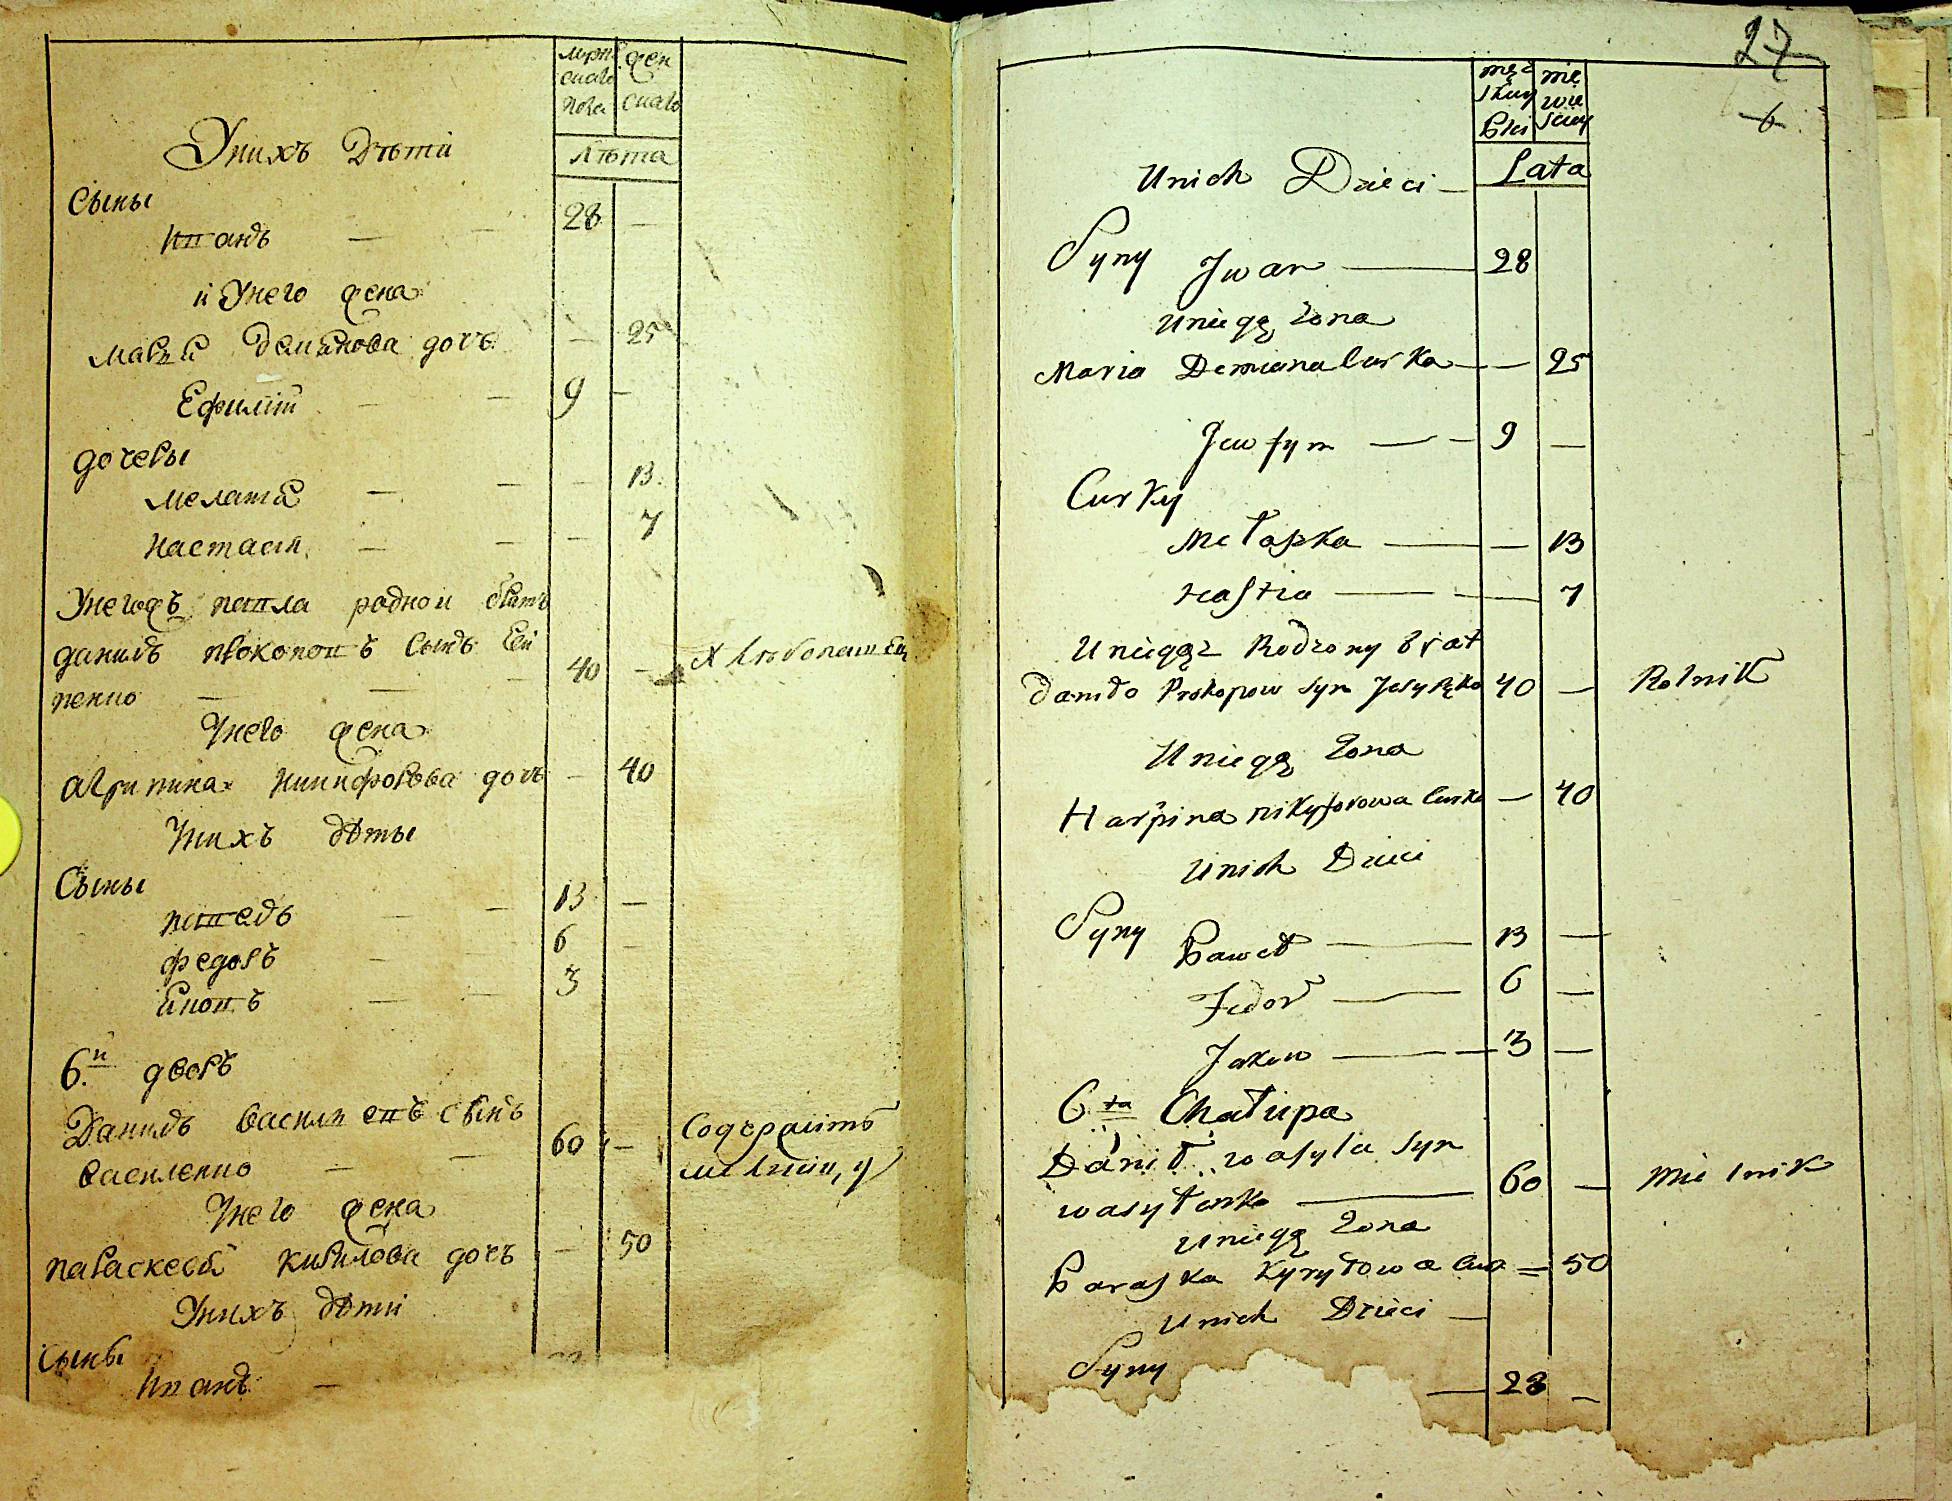 мужескаго пола
женскаго
лѣта
У нихъ Дѣти
Сыны
Иванъ — — 28 —
и У него жена
Марья Демянова дочъ — 25
Ефимій — — 9 —
дочеры
Мелатія — — — 13
Настасія — — — 7
У негожъ Павла родной братъ
данилъ Прокоповъ сынъ
пенко — — — 40 — Хлѣбопашецъ
У него жена
Агрипина Никифорова дочъ — 40
У нихъ дѣты
Сыны
Павелъ — — 13 —
Федоръ — — 6 —
Яковъ — — 3
6й дворъ
Данилъ Василиевъ сынъ
Василенко — — 60 — Содержитъ
мельницу
У него жена
Параскевія Кирилова дочъ — 50
У нихъ дѣти
Сыны
Иванъ —
27
6
Lata
Unich Dzieci —
Syny Jwan — 28
Uniegą żona
Maria Demiana Curka — — 25
Jewfym — — 9 —
Curky
Metaszka — — 13
Nastia — — 7
Uniegąż Rodzony brat
Daniło Prokopow Syn 40 — Rolnik
Uniegą żona
Harpina nikyforowa Curka — 40
Unich Dzieci
Syny Paweł — 13 —
Fedor — 6 —
Jakow — — 3 —
6ta Chałupa
Danił wasyla Syn
wasyłenko — 60 — Mielnik
Uniegą żona
Paraska Kyryłowa Cur = 50
Unich Dzieci —
Syny
— 28 —